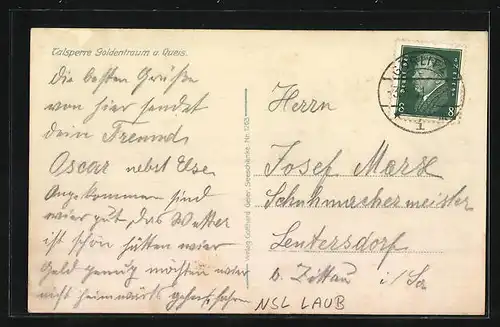 Talsperre Goldentraum a. Queis.
Die besten Grüße
von hier sendet
dein Freund
Oscar nebst Else
Angekommen sind
wier gut, das Wetter
ist schön hätten wier
Geld genug möchten wier
nicht heimwärts gehen, fahren
Verlag Gotthard Geier, Seeschänke. Nr. 1203
GÖRLITZ
1
8 8
Herrn
Josef Marx
Schuhmachermeister
Leutersdorf
b. Zittau i/Sa
NSL LAUB